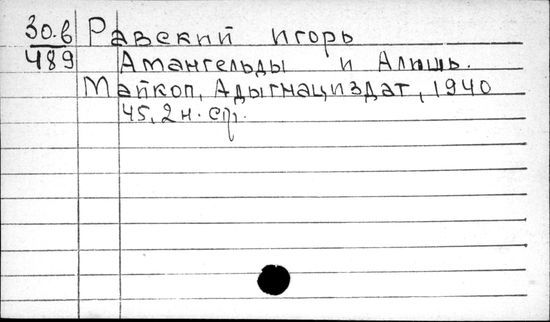 30.в Равский Игорь
489 Амангельды и Алишь.
Майкоп, Адыгнациздат, 1940
45, 2 н. стр.